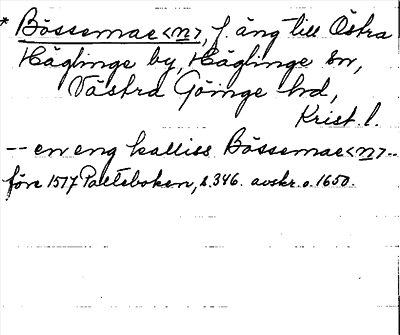 * Bössemae<n>, f. äng till Östra
Häglinge by, Häglinge sn,
Västra Göinge hd,
Krist. l.
-- en eng kalliss Bössemae<n> --
före 1517 Palteboken, s. 346. avskr. o. 1650.